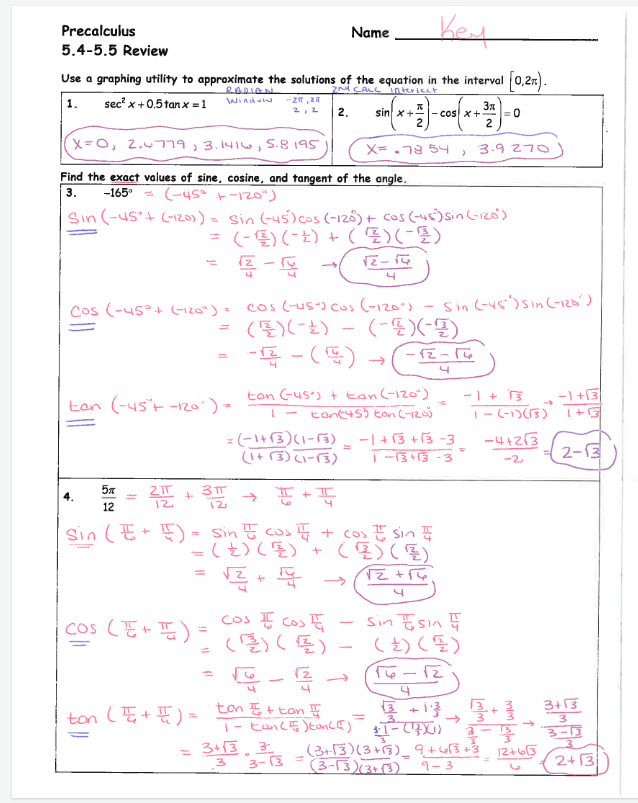 Precalculus Name Key
5.4-5.5 Review
Use a graphing utility to approximate the solutions of the equation in the interval [0,2π).
RADIAN 2nd CALC intersect
1. sec² x + 0.5 tan x = 1 Window -2π, 2π
2, 2
2. sin(x + π/2) − cos(x + 3π/2) = 0
x=0, 2.6779, 3.1416, 5.8195
x= .7854, 3.9270
Find the exact values of sine, cosine, and tangent of the angle.
3. -165° = (-45° + -120°)
Sin (-45° + (-120)) = Sin (-45°) cos (-120°) + cos (-45°) sin (-120°)
= (-√2/2)(-1/2) + (√2/2)(-√3/2)
= √2/4 - √6/4 → (√2-√6)/4
Cos (-45° + (-120°)) = cos (-45°) cos (-120°) - Sin (-45°) Sin (-120°)
= (√2/2)(-1/2) - (-√2/2)(-√3/2)
= -√2/4 - (√6/4) → (-√2-√6)/4
tan (-45° + -120°) = (tan (-45°) + tan (-120°))/(1 - tan(45) tan(-120)) = (-1 + √3)/(1-(-1)(√3)) → (-1+√3)/(1+√3)
= (-1+√3)(1-√3)/((1+√3)(1-√3)) = (-1+√3+√3-3)/(1-√3+√3-3) = (-4+2√3)/-2 = 2-√3
4. 5π/12 = 2π/12 + 3π/12 → π/6 + π/4
Sin (π/6 + π/4) = Sin π/6 cos π/4 + cos π/6 sin π/4
= (1/2)(√2/2) + (√3/2)(√2/2)
= √2/4 + √6/4 → (√2+√6)/4
cos (π/6 + π/4) = cos π/6 cos π/4 - sin π/6 sin π/4
= (√3/2)(√2/2) - (1/2)(√2/2)
= √6/4 - √2/4 → (√6-√2)/4
tan (π/6 + π/4) = (tan π/6 + tan π/4)/(1 - tan(π/6)tan(π/4)) = (√3/3 + 1·3/3)/(3/3·1-(√3/3)(1)) → (√3/3 + 3/3)/(3/3 - √3/3) → ((3+√3)/3)/((3-√3)/3)
= (3+√3)/3 · 3/(3-√3) = (3+√3)(3+√3)/((3-√3)(3+√3)) = (9+6√3+3)/(9-3) = (12+6√3)/6 = 2+√3